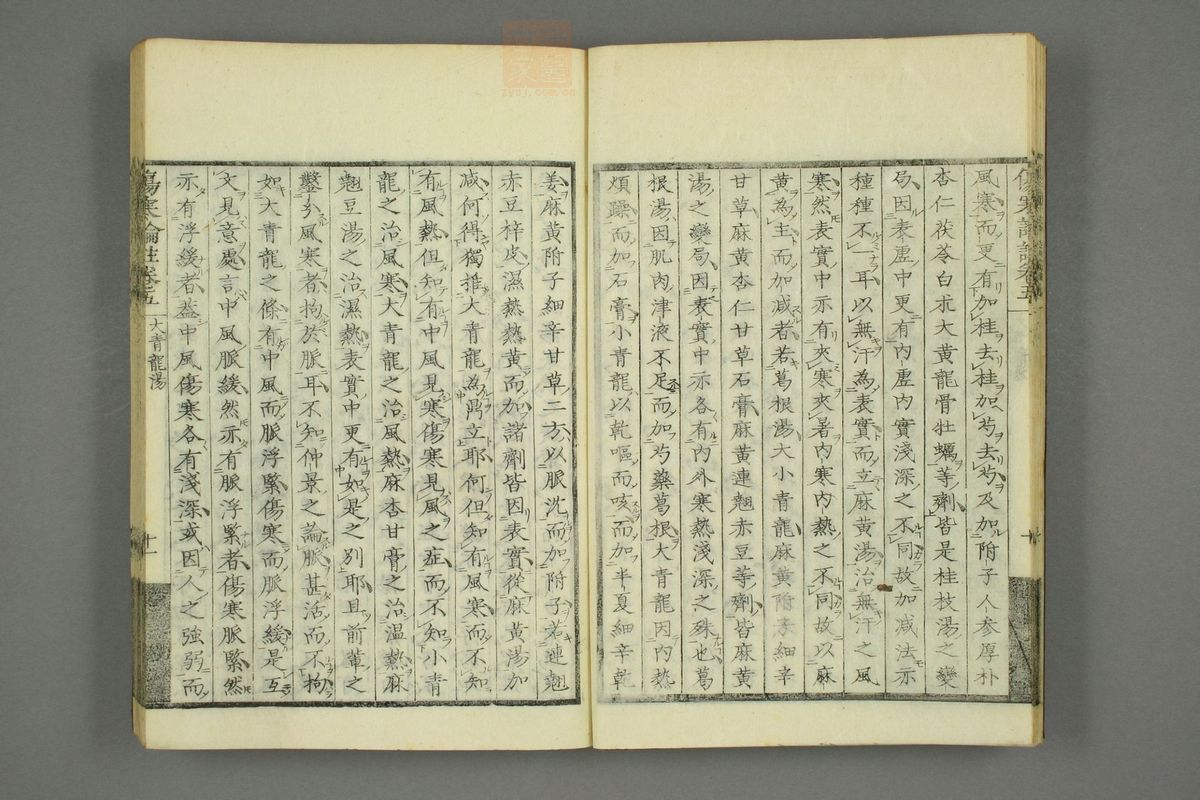 傷寒論註卷五
十
風寒而更有加桂去桂加芍去芍及加附子人參厚朴
杏仁茯苓白朮大黃龍骨牡蠣等劑皆是桂枝湯之變
局因表虛中更有內虛內實淺深之不同故加減法亦
種種不一耳以無汗爲表實而立麻黃湯治無汗之風
寒然表實中亦有夾寒夾暑內寒內熱之不同故以麻
黃爲主而加減者若葛根湯大小青龍麻黃附子細辛
甘草麻黃杏仁甘草石膏麻黃連翹赤豆等劑皆麻黃
湯之變局因表實中亦各有內外寒熱淺深之殊也葛
根湯因肌肉津液不足而加芍藥葛根大青龍因內熱
煩躁而加石膏小青龍以乾嘔而咳而加半夏細辛乾
姜麻黃附子細辛甘草二方以脈沈而加附子若連翹
赤豆梓皮濕熱熱黃而加諸劑皆因表實從麻黃湯加
減何得獨推大青龍爲鼎立耶何但知有風寒而不知
有風熱但知有中風見寒傷寒見風之症而不知小青
龍之治風寒大青龍之治風熱麻杏甘膏之治溫熱麻
翹豆湯之治濕熱表實中更有如是之別耶且前輩之
鑿分風寒者拘於脈耳不知仲景之論脈甚活而不拘
如大青龍之條有中風而脈浮緊傷寒而脈浮緩是互
文見意處言中風脈緩然亦有脈浮緊者傷寒脈緊然
亦有浮緩者蓋中風傷寒各有淺深或因人之強弱而
傷寒論註卷五
大青龍湯
十一
zycj.com.cn